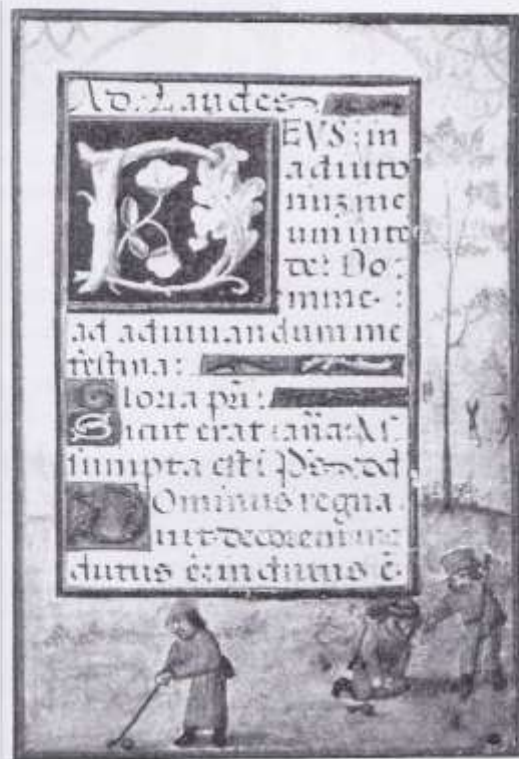 Ad: Laudes
DEVS: in
adiuto
riuz me
um inte
de: Do:
mine:
ad adiuuandum me
festina:
Gloria pri:
Sicut erat: aña: As
sumpta est: Ps
Dominus regna
uit decorem in
dutus ē: indutus ē